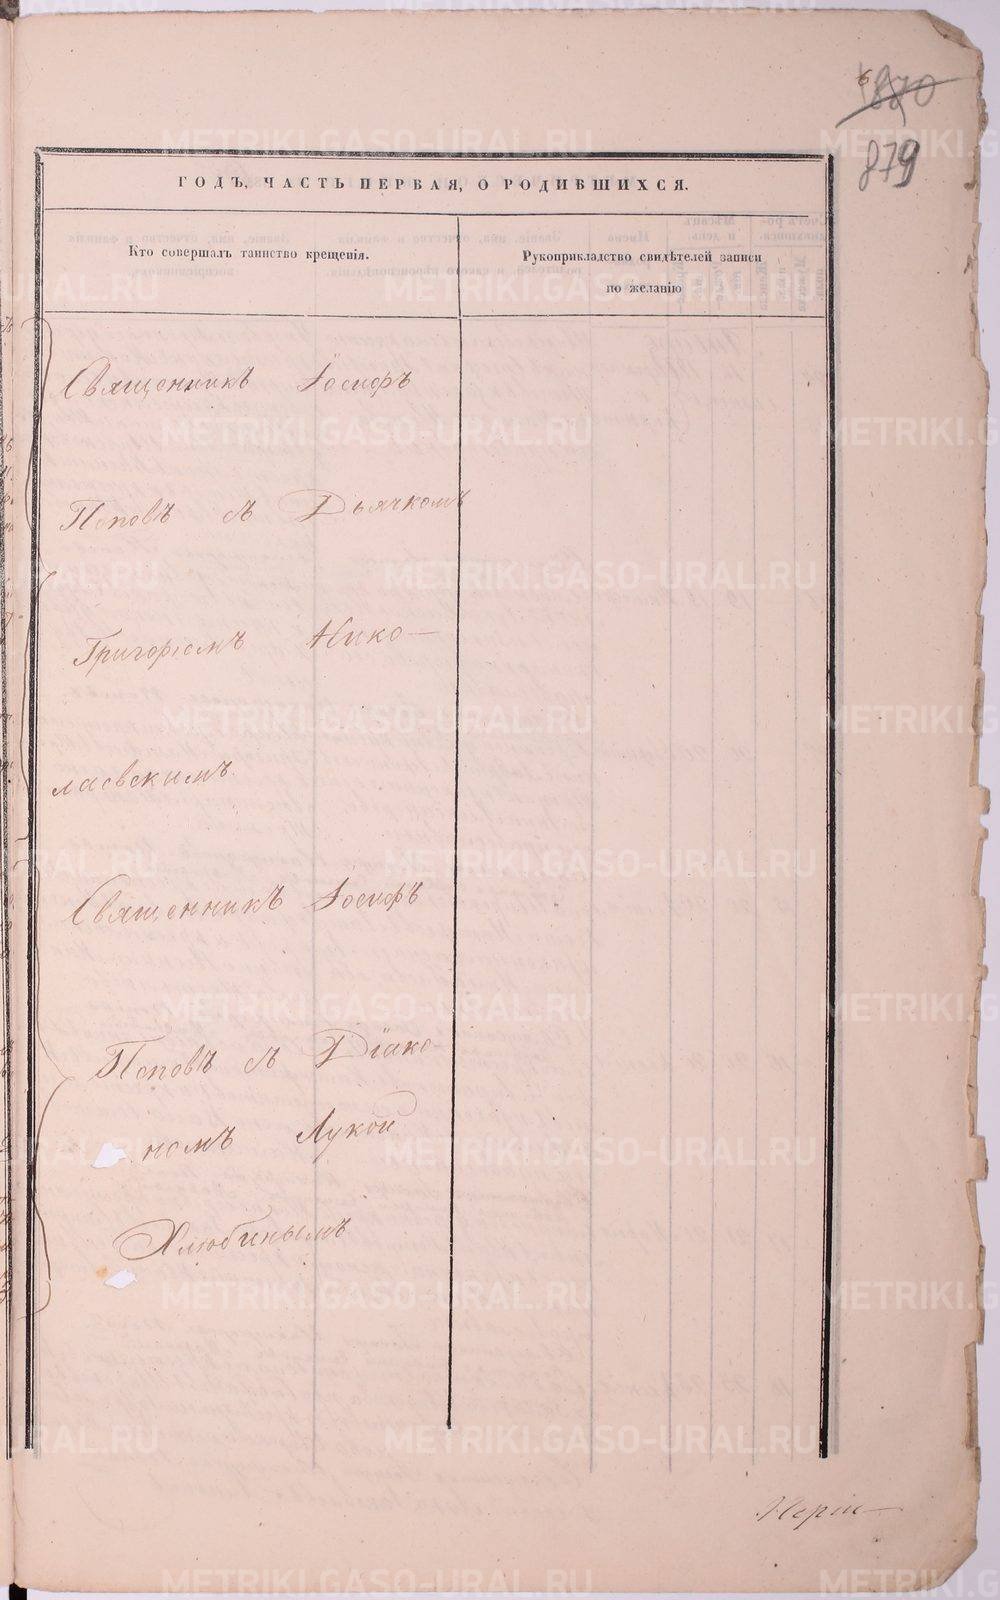 6
880
879
ГОДЪ, ЧАСТЬ ПЕРВАЯ, О РОДИВШИХСЯ.
Кто совершалъ таинство крещенія.
Рукоприкладство свидѣтелей записи
по желанію
Священникъ Іосифъ
Поповъ съ Дьячкомъ
Григоріемъ Нико-
лаевскимъ
Священникъ Іосифъ
Поповъ съ Діако-
номъ Лукой
Хлюбинымъ
METRIKI.GASO-URAL.RU